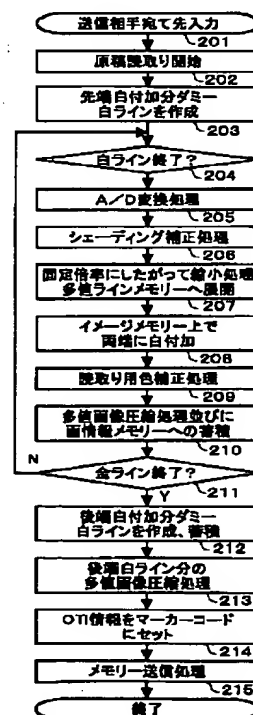 送信相手宛て先入力
201
原稿読取り開始
202
先端白付加分ダミー
白ラインを作成
203
白ライン終了?
204
A/D変換処理
205
シェーディング補正処理
206
固定倍率にしたがって縮小処理
多値ラインメモリーへ展開
207
イメージメモリー上で
両端に白付加
208
読取り用色補正処理
209
多値画像圧縮処理並びに
画情報メモリーへの蓄積
210
N
全ライン終了?
211
Y
後端白付加分ダミー
白ラインを作成、蓄積
212
後端白ライン分の
多値画像圧縮処理
213
OTI情報をマーカーコード
にセット
214
メモリー送信処理
215
終了